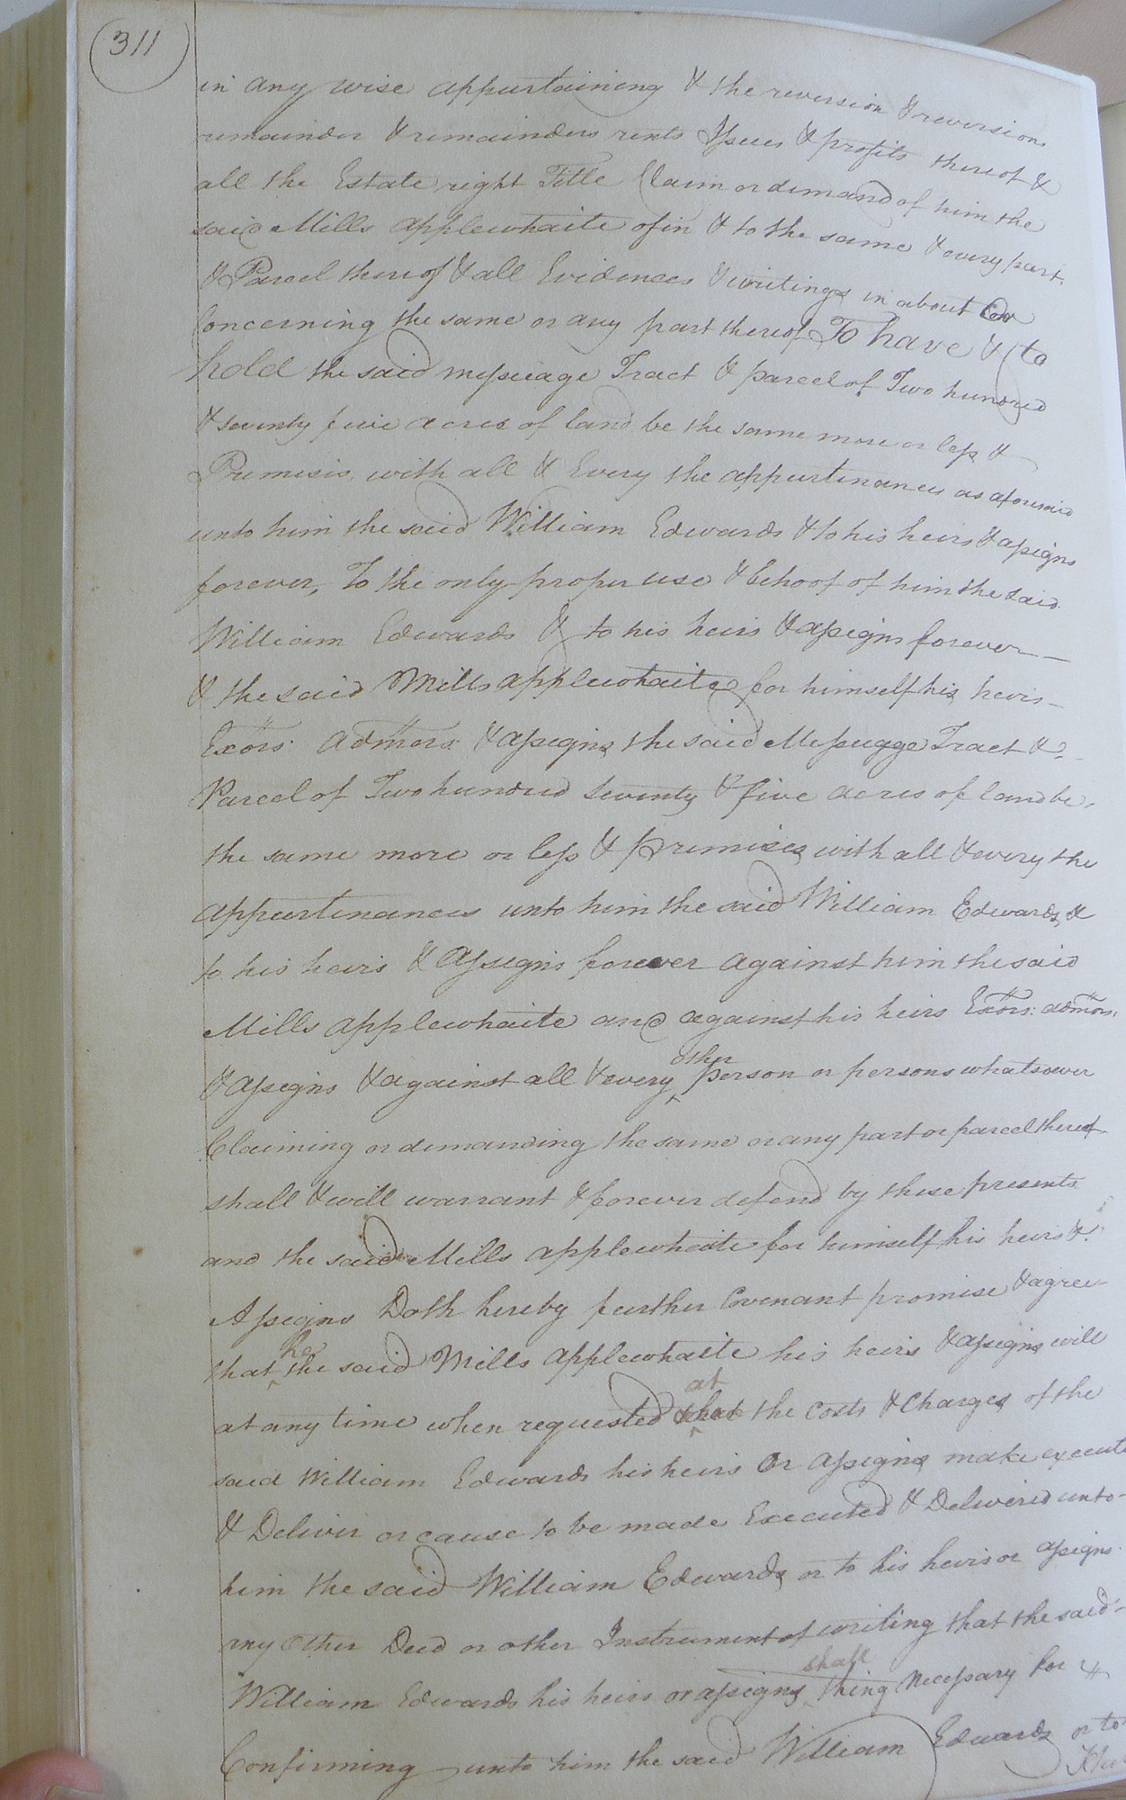 311
in any wise appurtaining & the reversion & reversions
remainder & remainders rents Issues & profits thereof &
all the Estate right Title Claim or demand of him the
said Mills Applewhaite of in & to the same & every part
& Parcel thereof & all Evidences & writings in about Con
Concerning the same or any part thereof To have & to
hold the said messuage Tract & parcel of Two hundred
& seventy five acres of land be the same more or less &
Premises with all & Every the appurtinances as aforesaid
unto him the said William Edwards & to his heirs & assigns
forever, To the only proper use & behoof of him the said
William Edwards & to his heirs & assigns forever
& the said Mills applewhaite for himself his heirs
Exors: Admors & assigns the said Messuage Tract &
Parcel of Two hundred Seventy & five acres of land be
the same more or less & premises with all & every the
appurtinances unto him the said William Edwards, &
to his heirs & Assigns forever against him the said
Mills applewhaite and against his heirs Exors: admors,
& assigns & against all & every other person or persons whatsoever
Claiming or demanding the same or any part or parcel thereof
shall & will warrant & forever defend by these presents
and the said Mills applewhaite for himself his heirs &
Assigns Doth hereby further Covenant promise & agree
that he the said Mills applewhaite his heirs & assigns will
at any time when requested at the costs & Charges of the
said William Edwards his heirs Or assigns make execute
& Deliver or cause to be made Executed & Delivered unto
him the said William Edwards or to his heirs or assigns
any Other Deed or other Instrument of writing that the said
William Edwards his heirs or assigns shall thing necessary for &
Confirming unto him the said William Edwards or to